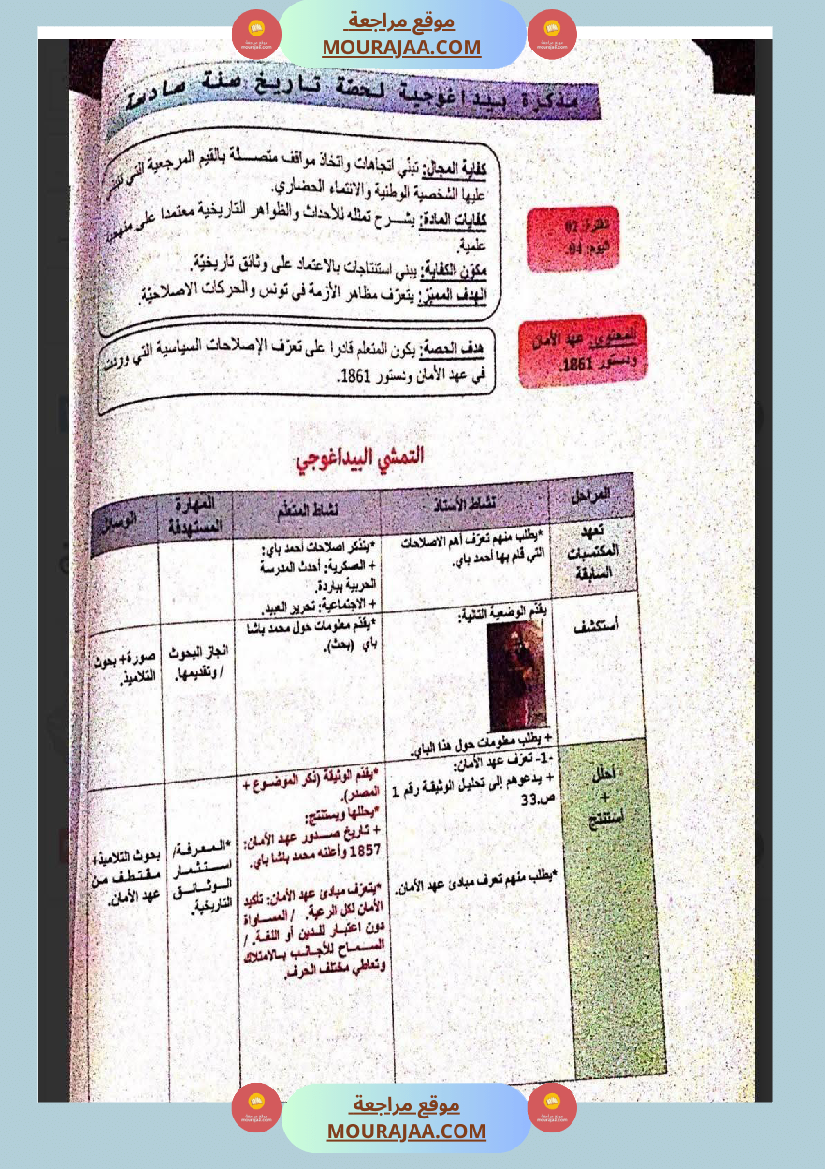 موقع مراجعة
MOURAJAA.COM
مذكرة بيداغوجية لحصة تاريخ سنة سادسة
كفاية المجال: تبنّي اتجاهات واتخاذ مواقف متصلة بالقيم المرجعية التي تنبني
عليها الشخصية الوطنية والانتماء الحضاري.
كفايات المادة: يشرح تمثله للأحداث والظواهر التاريخية معتمدا على منهجية
علمية.
مكوّن الكفاية: يبني استنتاجات بالاعتماد على وثائق تاريخيّة.
الهدف المميّز: يتعرّف مظاهر الأزمة في تونس والحركات الاصلاحيّة.
02
اليوم: 04.
هدف الحصة: يكون المتعلم قادرا على تعرّف الإصلاحات السياسية التي وردت
في عهد الأمان ودستور 1861.
المحتوى: عهد الأمان
ودستور 1861.
التمشي البيداغوجي
المراحل
نشاط الأستاذ
نشاط المتعلّم
المهارة
المستهدفة
الوسائل
تعهد
المكتسبات
السابقة
*يطلب منهم تعرّف أهم الاصلاحات
التي قام بها أحمد باي.
*يتذكر اصلاحات أحمد باي:
+ العسكرية: أحدث المدرسة
الحربية بباردة.
+ الاجتماعية: تحرير العبيد.
أستكشف
يقدّم الوضعية التالية:
+ يطلب معلومات حول هذا الباي.
*يقدّم معلومات حول محمد باشا
باي (بحث).
انجاز البحوث
/ وتقديمها.
صورة+ بحوث
التلاميذ.
أحلل
+
أستنتج
-1- تعرّف عهد الأمان:
+ يدعوهم إلى تحليل الوثيقة رقم 1
ص.33
*يطلب منهم تعرف مبادئ عهد الأمان.
*يقدّم الوثيقة (ذكر الموضوع +
المصدر).
*يحللها ويستنتج:
+ تاريخ صدور عهد الأمان:
1857 وأعلنه محمد باشا باي.
*يتعرّف مبادئ عهد الأمان: تأكيد
الأمان لكل الرعية. / المساواة
دون اعتبار للدين أو اللغة. /
السماح للأجانب بالامتلاك
وتعاطي مختلف الحرف.
*المعرفة/
استثمار
الوثائق
التاريخية.
بحوث التلاميذ+
مقتطف من
عهد الأمان.
موقع مراجعة
MOURAJAA.COM